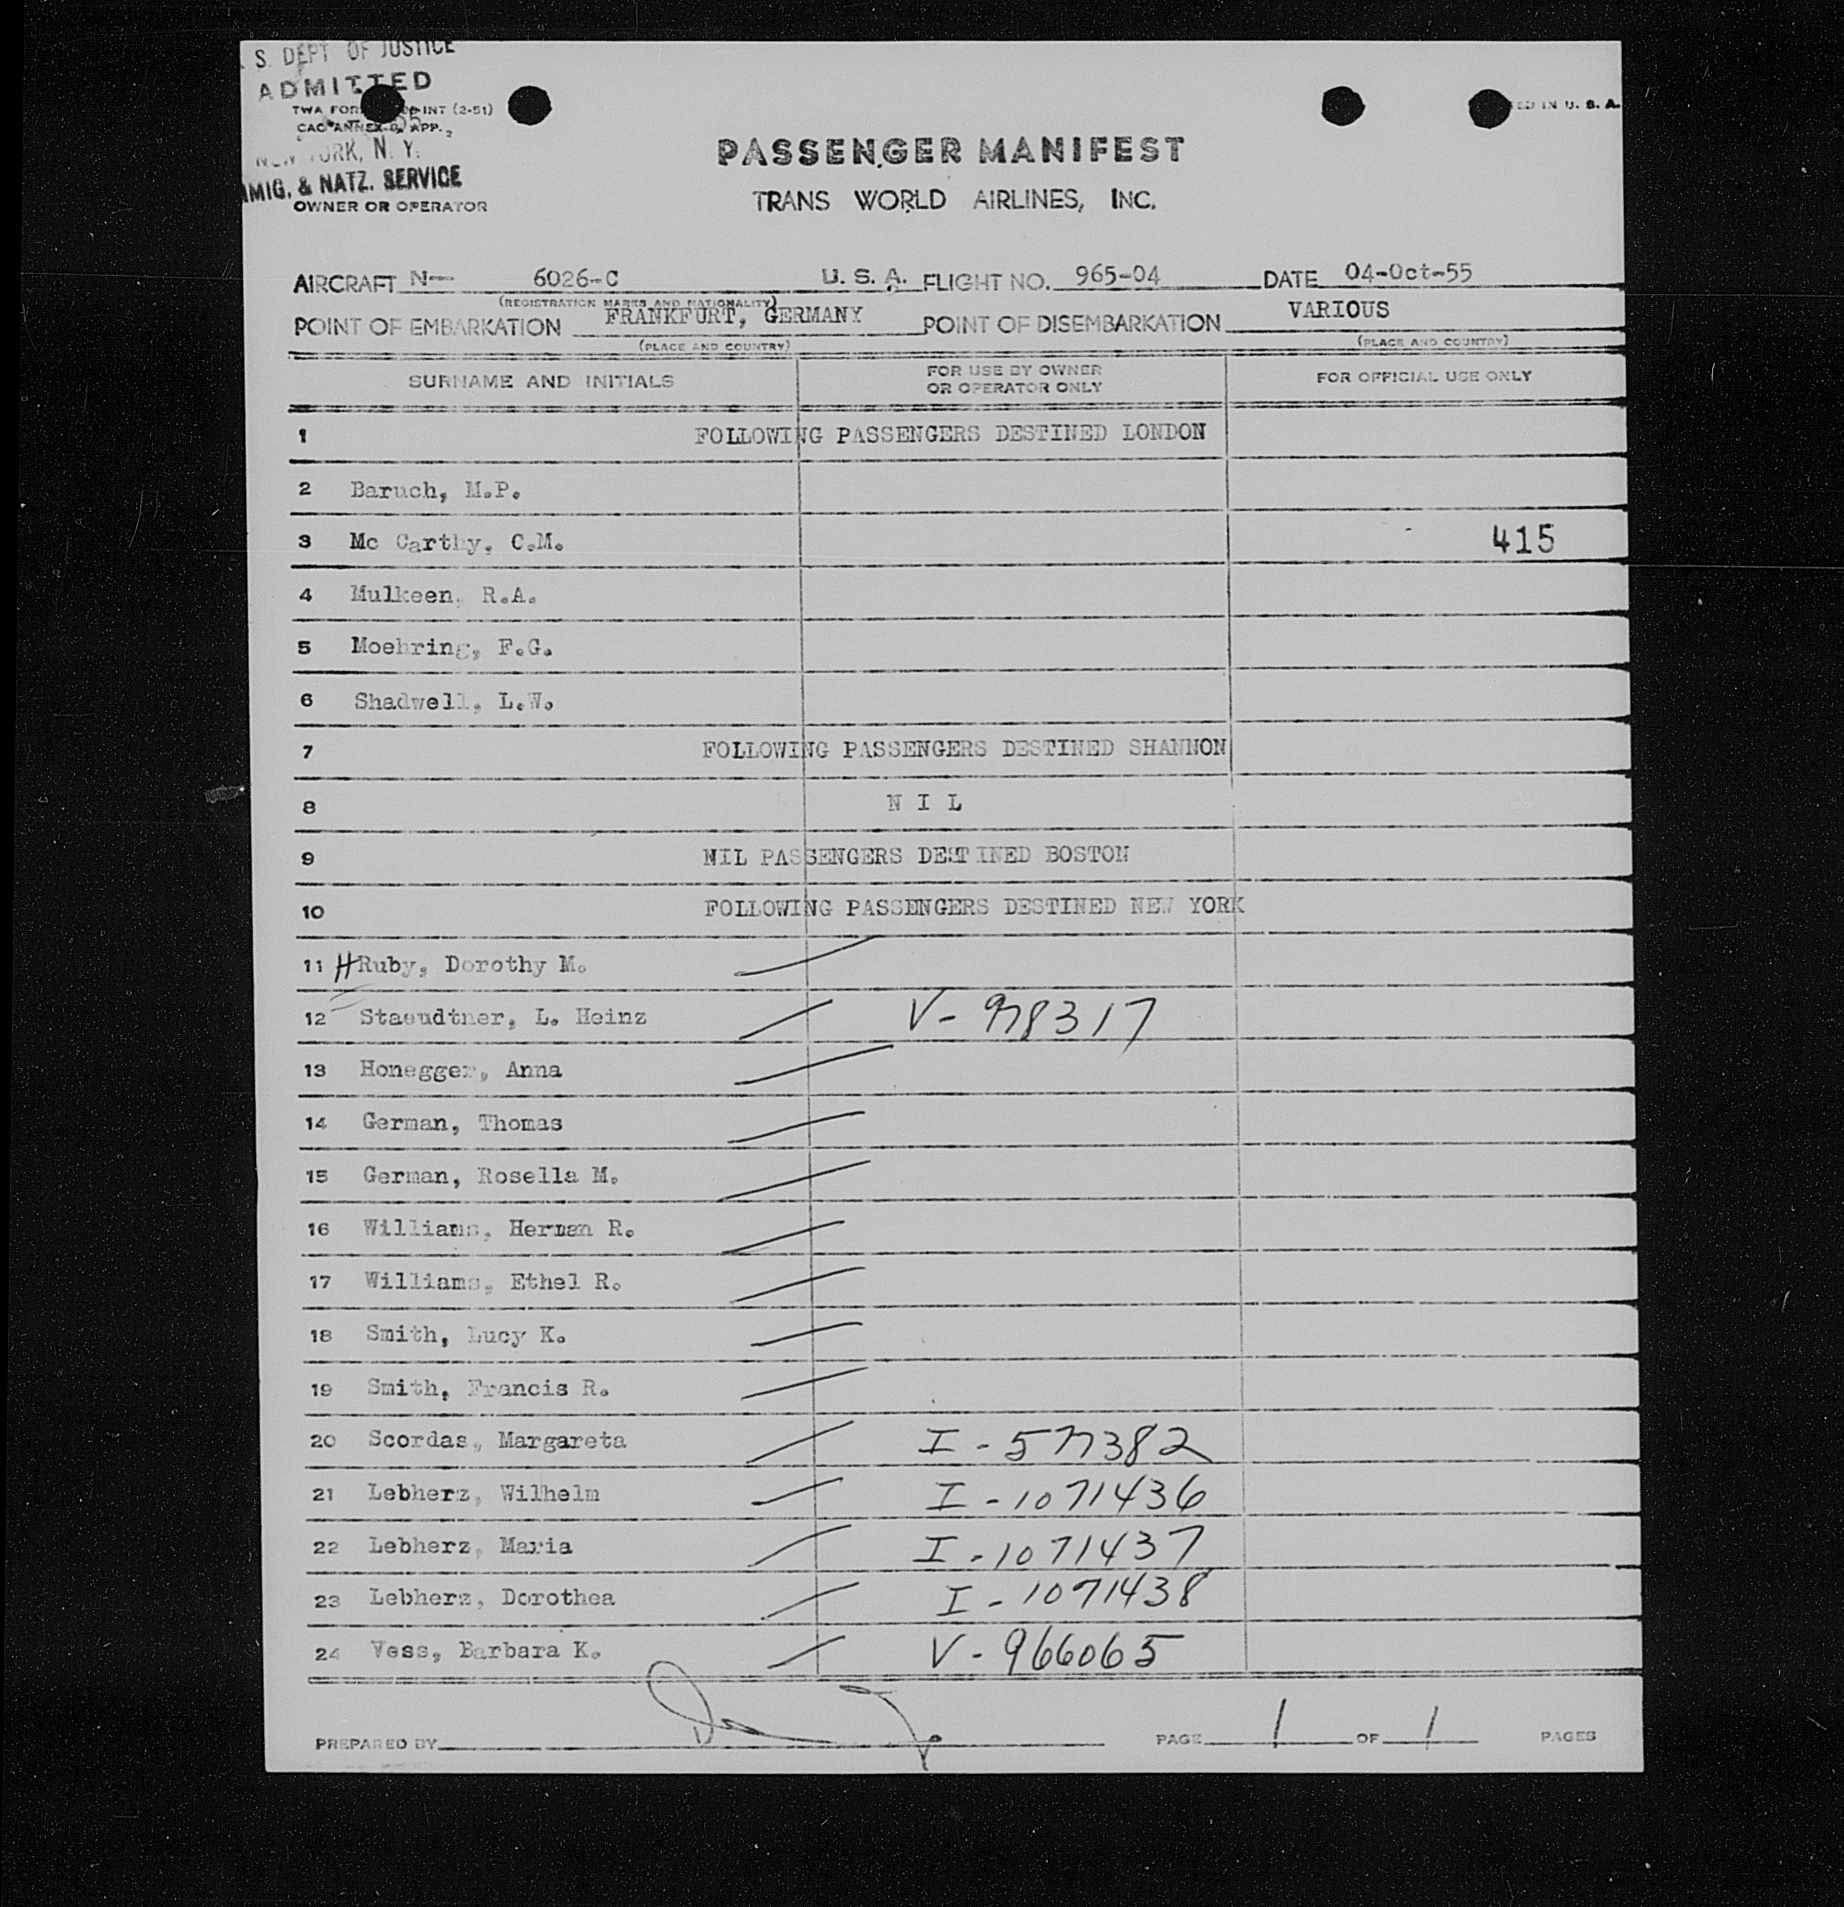 S. DEPT OF JUSTICE
ADMITTED
TWA FORM INT (2-51)
CAO ANNEX 9, APP. 2
NEW YORK, N. Y.
IMMIG. & NATZ. SERVICE
OWNER OR OPERATOR
IN U. S. A.
PASSENGER MANIFEST
TRANS WORLD AIRLINES, INC.
AIRCRAFT N- 6026-C U. S. A. FLIGHT NO. 965-04 DATE 04-Oct-55
(REGISTRATION MARKS AND NATIONALITY)
POINT OF EMBARKATION FRANKFURT, GERMANY POINT OF DISEMBARKATION VARIOUS
(PLACE AND COUNTRY) (PLACE AND COUNTRY)
SURNAME AND INITIALS FOR USE BY OWNER OR OPERATOR ONLY FOR OFFICIAL USE ONLY
1 FOLLOWING PASSENGERS DESTINED LONDON
2 Baruch, M.P.
3 Mc Carthy, C.M. 415
4 Mulkeen, R.A.
5 Moehring, F.G.
6 Shadwell, L.W.
7 FOLLOWING PASSENGERS DESTINED SHANNON
8 N I L
9 NIL PASSENGERS DESTINED BOSTON
10 FOLLOWING PASSENGERS DESTINED NEW YORK
11 H Ruby, Dorothy M.
12 Staeudtner, L. Heinz V-978317
13 Honegger, Anna
14 German, Thomas
15 German, Rosella M.
16 Williams, Herman R.
17 Williams, Ethel R.
18 Smith, Lucy K.
19 Smith, Francis R.
20 Scordas, Margareta I-577382
21 Lebherz, Wilhelm I-1071436
22 Lebherz, Maria I-1071437
23 Lebherz, Dorothea I-1071438
24 Vess, Barbara K. V-966065
PREPARED BY PAGE 1 OF 1 PAGES